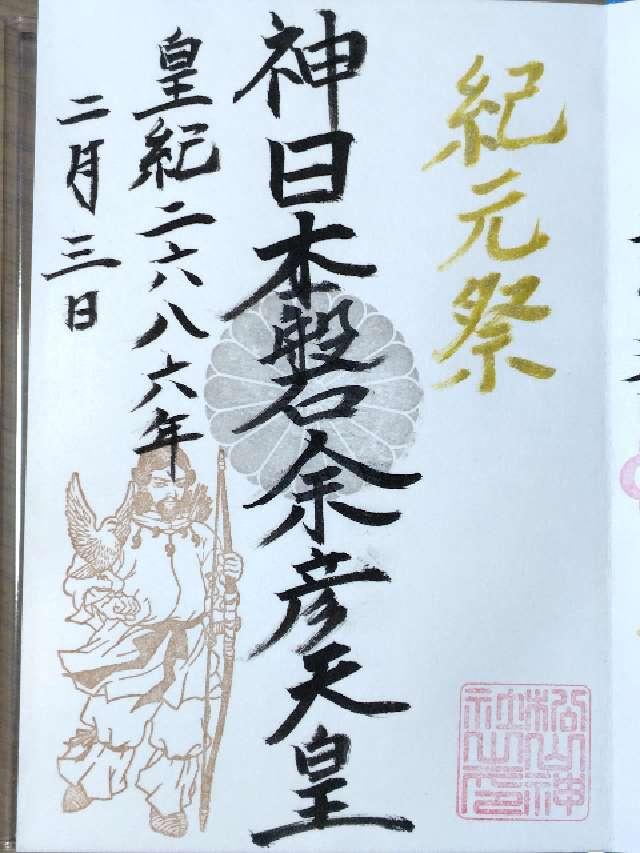 紀元祭
神日本磐余彦天皇
皇紀二六八六年
二月三日